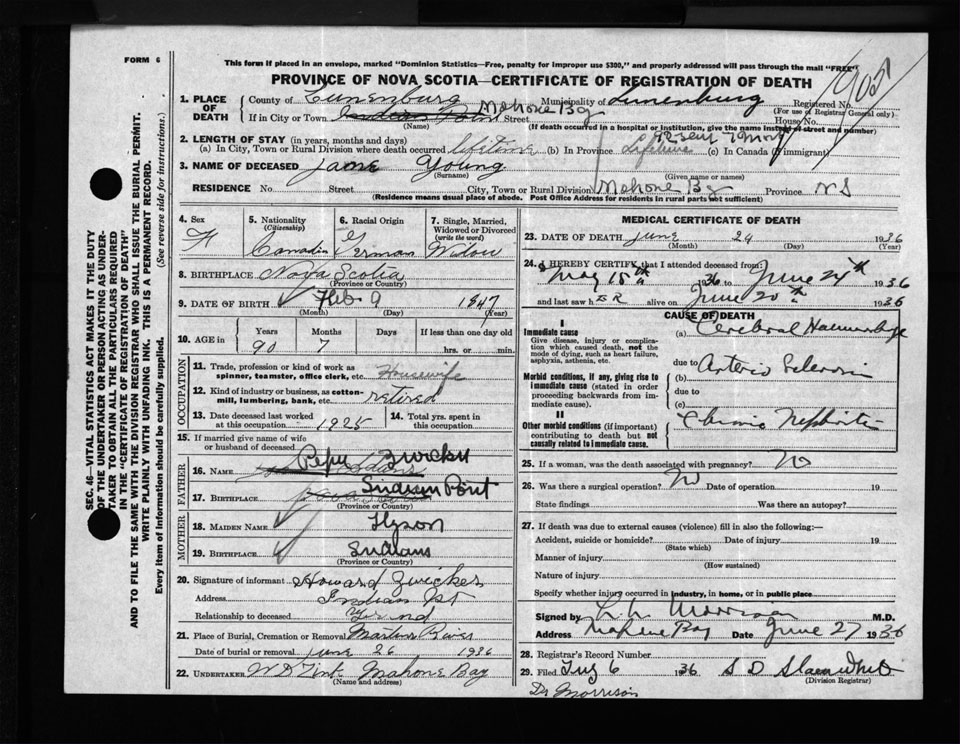 FORM 6
This form if placed in an envelope, marked "Dominion Statistics—Free, penalty for improper use $300," and properly addressed will pass through the mail "FREE"
PROVINCE OF NOVA SCOTIA—CERTIFICATE OF REGISTRATION OF DEATH
SEC. 46—VITAL STATISTICS ACT MAKES IT THE DUTY
OF THE UNDERTAKER OR PERSON ACTING AS UNDER-
TAKER TO OBTAIN ALL THE PARTICULARS REQUIRED
IN THE "CERTIFICATE OF REGISTRATION OF DEATH"
AND TO FILE THE SAME WITH THE DIVISION REGISTRAR WHO SHALL ISSUE THE BURIAL PERMIT.
WRITE PLAINLY WITH UNFADING INK. THIS IS A PERMANENT RECORD.
Every item of Information should be carefully supplied. (See reverse side for instructions.)
1. PLACE OF DEATH
County of Lunenburg Municipality of Lunenburg Registered No. 905
(For use of Registrar General only)
If in City or Town Indian Point Mahone Bay Street House No.
(Name) (If death occurred in a hospital or institution, give the name instead of street and number)
2. LENGTH OF STAY (in years, months and days)
(a) In City, Town or Rural Division where death occurred lifetime (b) In Province Lifetime (c) In Canada (if immigrant)
3. NAME OF DECEASED Jane Young
(Surname) (Given name or names)
RESIDENCE No. Street City, Town or Rural Division Mahone Bay Province N S
(Residence means usual place of abode. Post Office Address for residents in rural parts not sufficient)
4. Sex 5. Nationality (Citizenship) 6. Racial Origin 7. Single, Married, Widowed or Divorced (write the word)
F Canadian German Widow
8. BIRTHPLACE Nova Scotia
(Province or Country)
9. DATE OF BIRTH Feb. 9 1847
(Month) (Day) (Year)
10. AGE in Years Months Days If less than one day old
90 7 hrs. or min.
OCCUPATION
11. Trade, profession or kind of work as spinner, teamster, office clerk, etc. Housewife
12. Kind of industry or business, as cotton-mill, lumbering, bank, etc. retired
13. Date deceased last worked at this occupation 1925 14. Total yrs. spent in this occupation
15. If married give name of wife or husband of deceased
FATHER
16. NAME Zwicker
17. BIRTHPLACE Indian Point
(Province or Country)
MOTHER
18. MAIDEN NAME Hyson
19. BIRTHPLACE Indians
(Province or Country)
20. Signature of informant Howard Zwicker
Address Indian Pt
Relationship to deceased
21. Place of Burial, Cremation or Removal Martins River
Date of burial or removal June 26 1936
22. UNDERTAKER W D Zink Mahone Bay
(Name and address)
MEDICAL CERTIFICATE OF DEATH
23. DATE OF DEATH June 24 1936
(Month) (Day)
24. I HEREBY CERTIFY that I attended deceased from
May 18th 36 to June 24th 1936
and last saw her alive on June 20th 1936
CAUSE OF DEATH
I
Immediate cause
Give disease, injury or complication which caused death, not the mode of dying, such as heart failure, asphyxia, asthenia, etc.
(a) Cerebral Haemorrhage
due to
Morbid conditions, if any, giving rise to immediate cause (stated in order proceeding backwards from immediate cause).
(b) Arterio Sclerosis
due to
(c)
II
Other morbid conditions (if important) contributing to death but not causally related to immediate cause.
Chronic Nephritis
25. If a woman, was the death associated with pregnancy? No
26. Was there a surgical operation? No Date of operation 19
State findings Was there an autopsy?
27. If death was due to external causes (violence) fill in also the following:—
Accident, suicide or homicide? Date of injury 19
(State which)
Manner of injury
(How sustained)
Nature of injury
Specify whether injury occurred in industry, in home, or in public place
Signed by Morrison M.D.
Address Mahone Bay Date June 27 1936
28. Registrar's Record Number
29. Filed July 6 36 S D Slaenwhite
(Division Registrar)
Dr Morrison